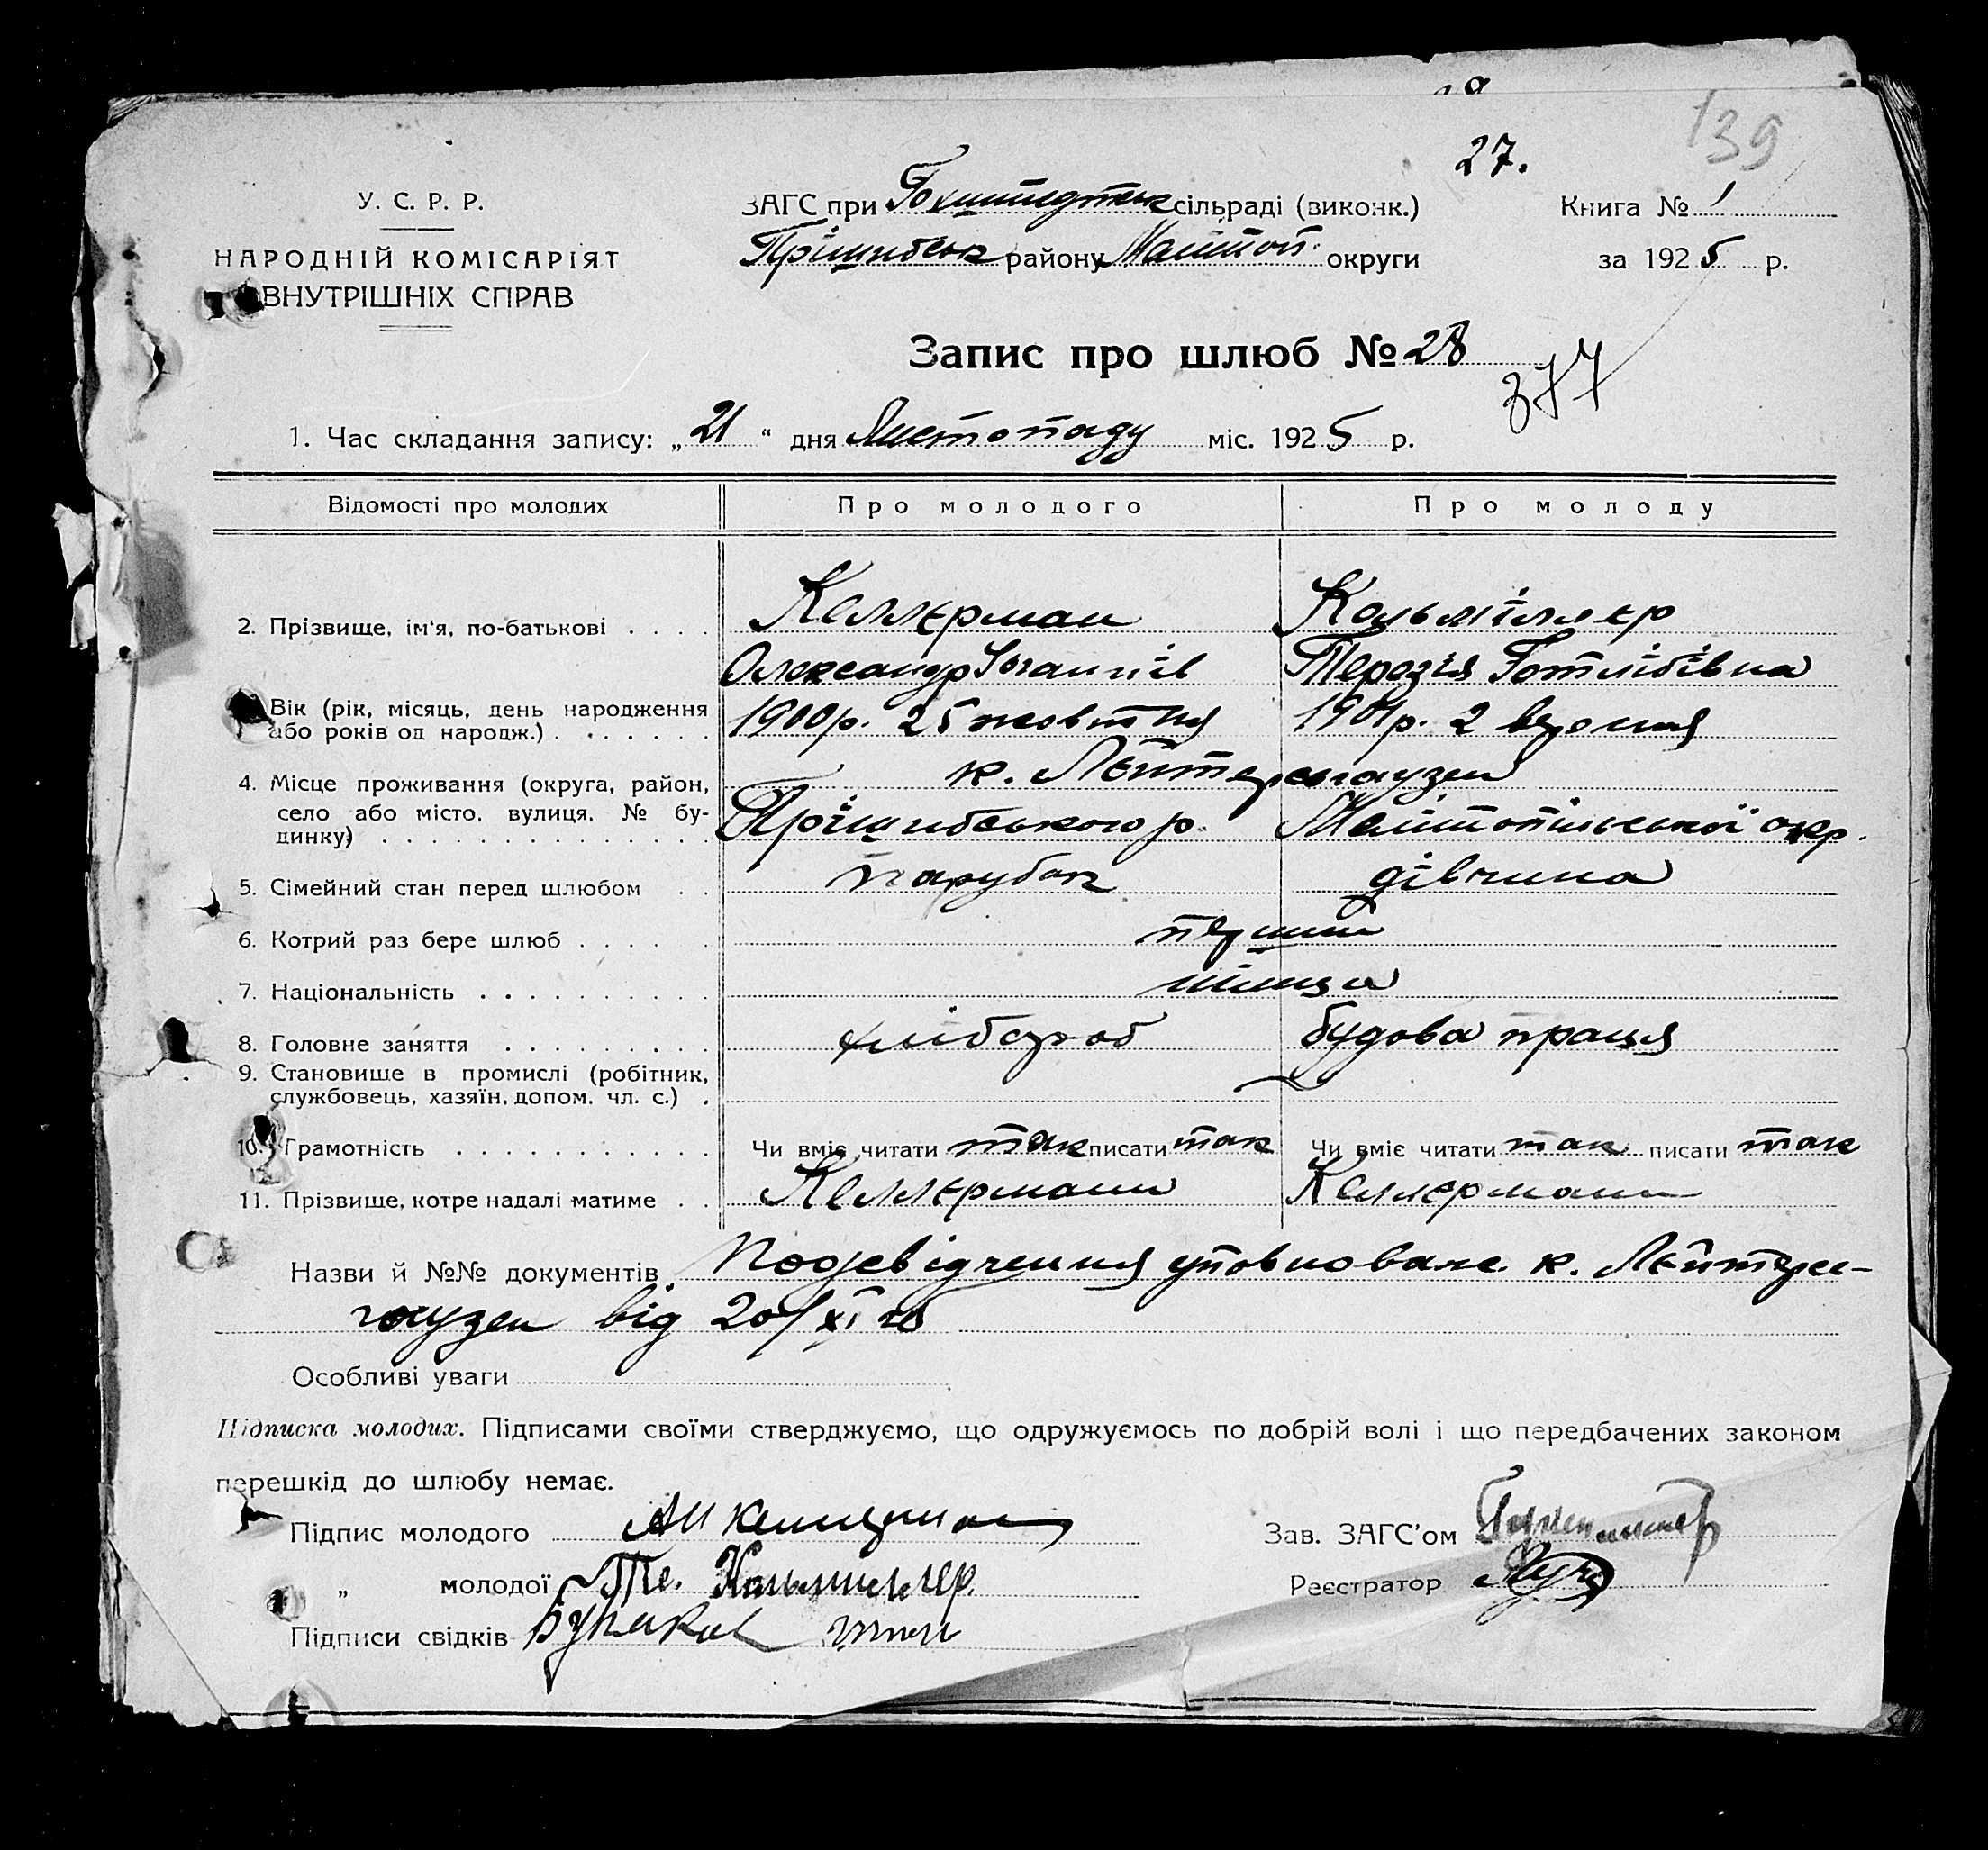 139
27.
У. С. Р. Р.
НАРОДНІЙ КОМІСАРІЯТ
ВНУТРІШНІХ СПРАВ
ЗАГС при Гохштедтськ сільраді (виконк.)
Прішибськ району Мелітоп. округи
Книга № 1
за 1925 р.
Запис про шлюб № 28
377
1. Час складання запису: „21“ дня Листопаду міс. 1925 р.
Відомості про молодих Про молодого Про молоду
2. Прізвище, ім'я, по-батькові . . . . Келлєрман Кольміллєр
Олександр Іоганнів Терезія Готлібівна
Вік (рік, місяць, день народження
або років од народж.) . . . . . . . 1900 р. 25 жовтня 1901 р. 2 вересня
к. Лейтерсгаузен
4. Місце проживання (округа, район,
село або місто, вулиця, № бу-
динку) . . . . . . . . . . . . . . Прішибського р. Мелітопільської окр.
5. Сімейний стан перед шлюбом . . парубок дівчина
6. Котрий раз бере шлюб . . . . . перший
7. Національність . . . . . . . . . . німці
8. Головне заняття . . . . . . . . . хлібороб будова праця
9. Становище в промислі (робітник,
службовець, хазяїн, допом. чл. с.) .
10. Грамотність . . . . . . . . . . . Чи вміє читати так писати так Чи вміє читати так писати так
11. Прізвище, котре надалі матиме . . Келлєрманн Келлєрманн
Назви й №№ документів Посвідчення уповноваж. к. Лейтерс-
гаузен від 20/XI 25
Особливі уваги
Підписка молодих. Підписами своїми стверджуємо, що одружуємось по добрій волі і що передбачених законом
перешкід до шлюбу немає.
Підпис молодого АИ Келлерман
Зав. ЗАГС'ом
„ молодої Те. Кольмиллер.
Реєстратор
Підписи свідків